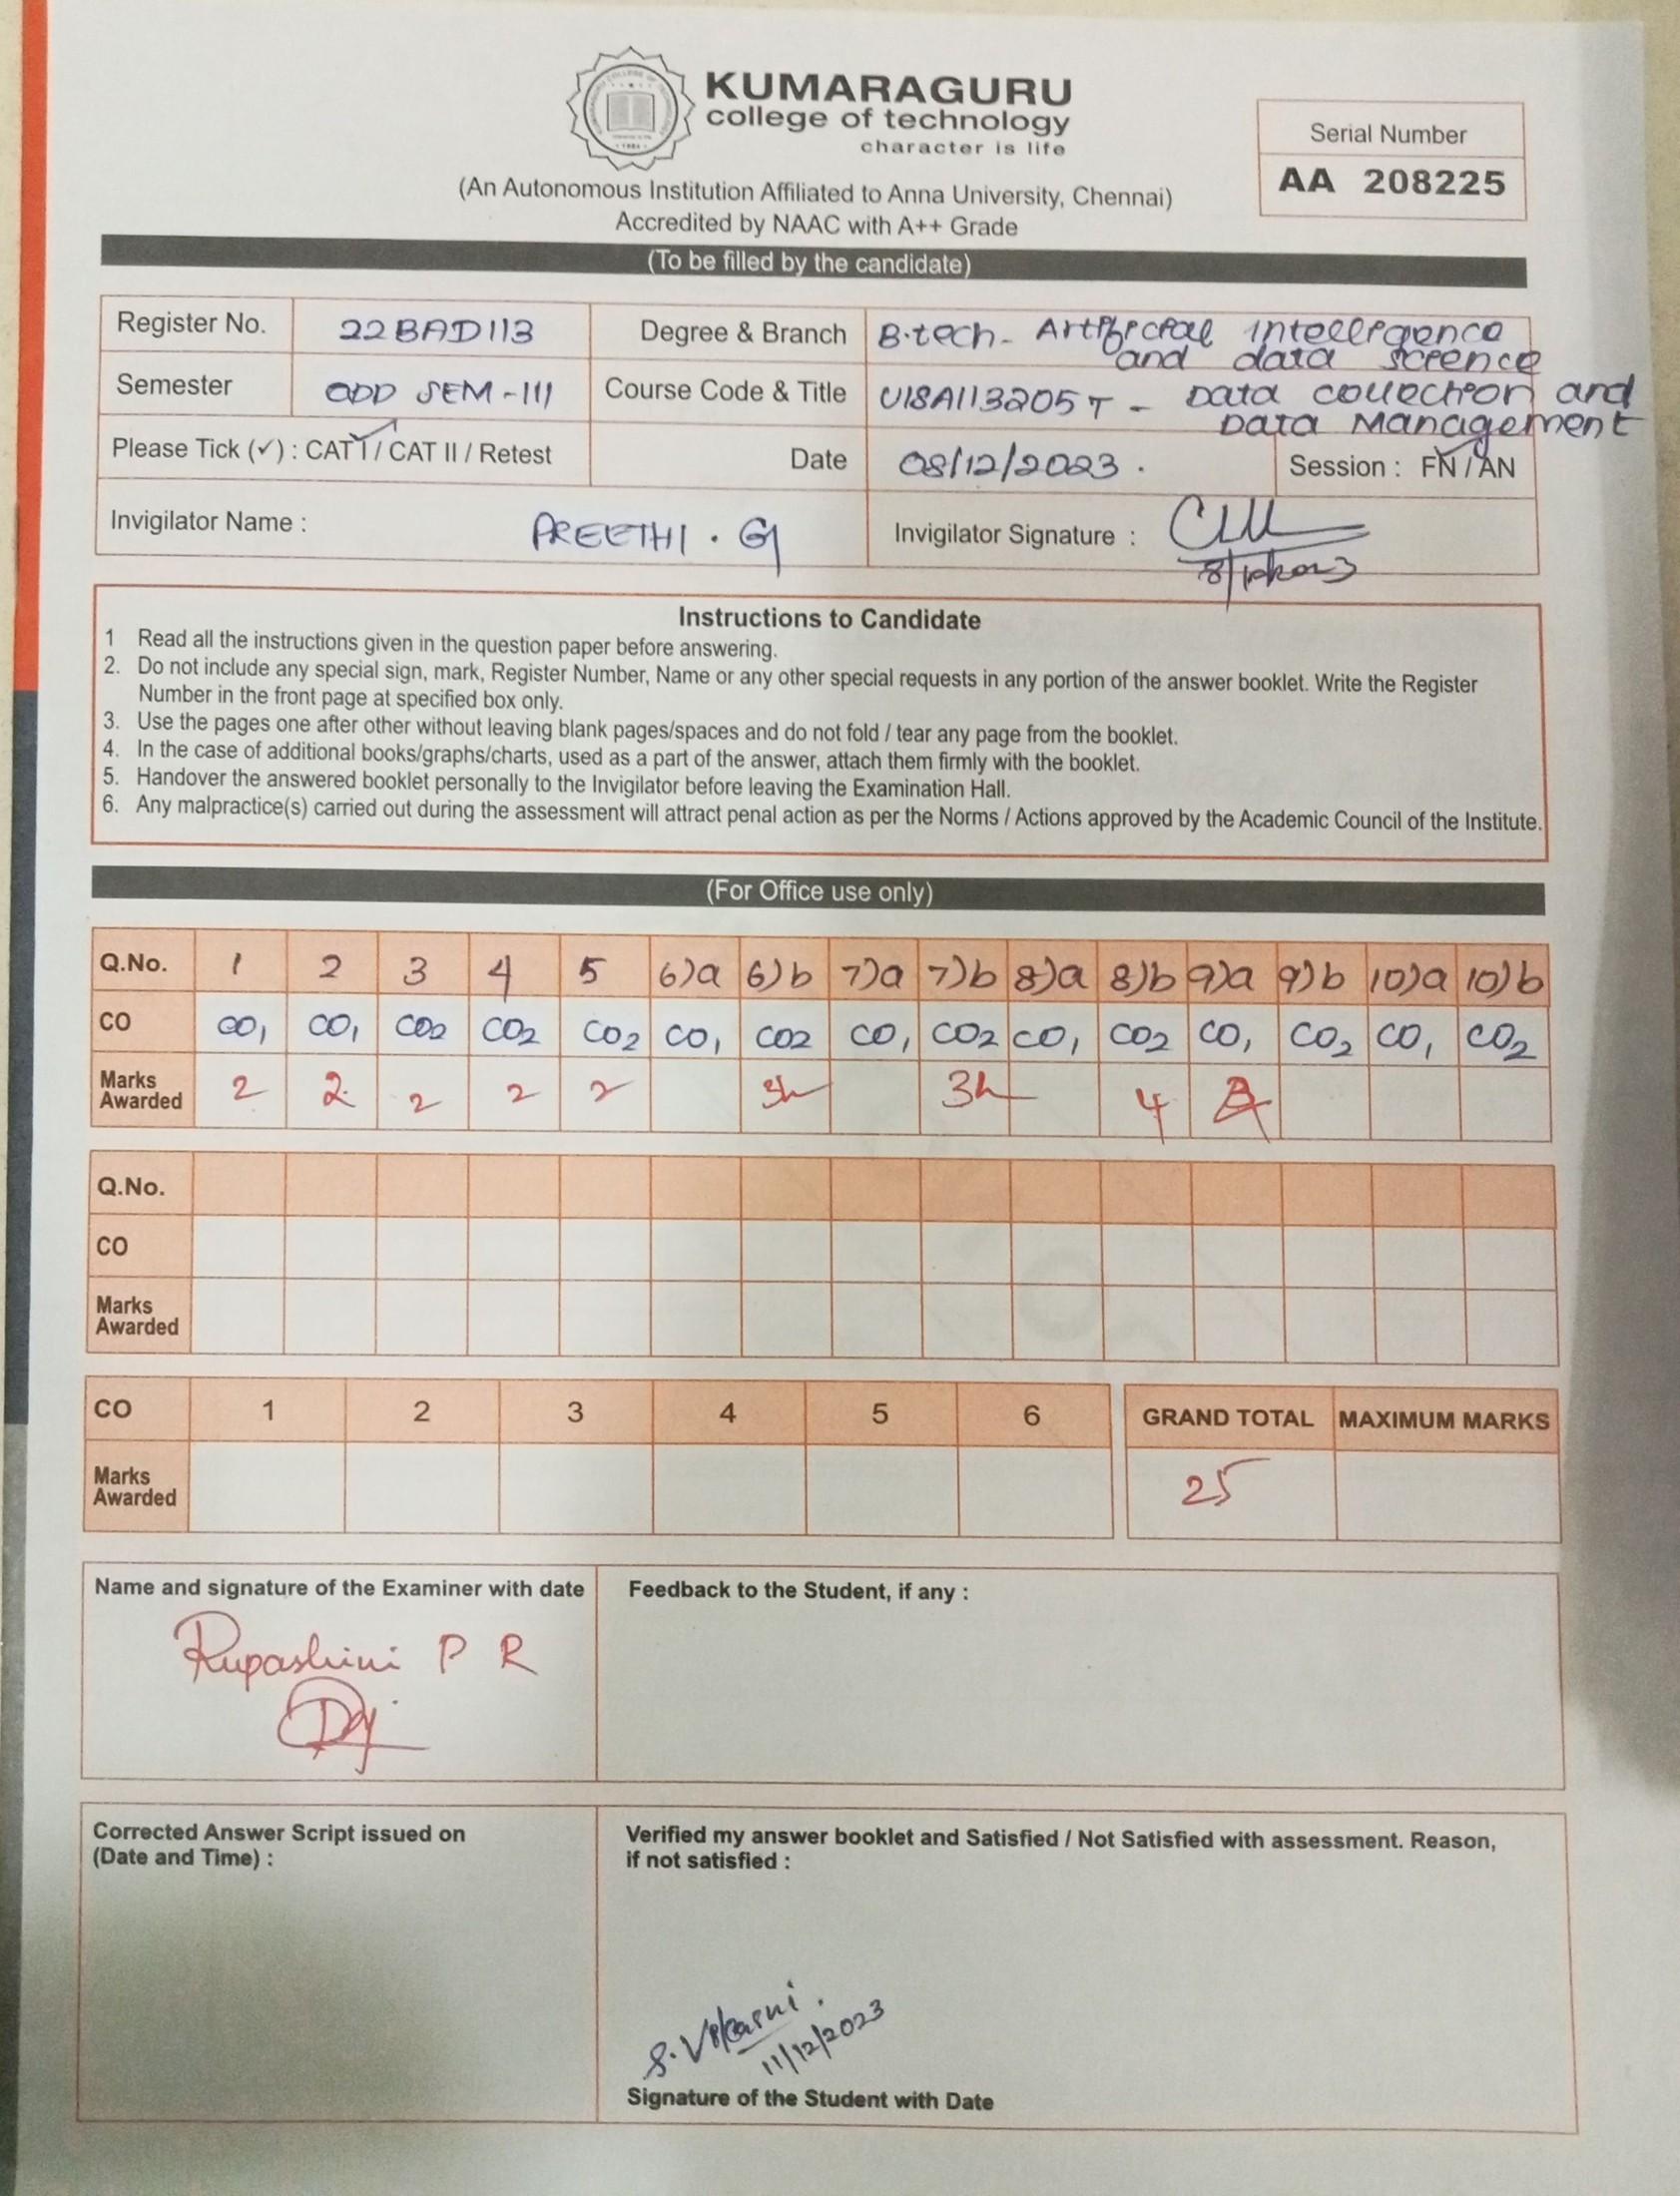 KUMARAGURU
college of technology
character is life
(An Autonomous Institution Affiliated to Anna University, Chennai)
Accredited by NAAC with A++ Grade
Serial Number
AA 208225
(To be filled by the candidate)
Register No. 22BAD113 Degree & Branch B.tech- Artificial intelligence
and data science
Semester ODD SEM-III Course Code & Title U18AII3205T - Data collection and
Data Management
Please Tick (✓) : CAT I / CAT II / Retest Date 08/12/2023. Session : FN / AN
Invigilator Name : PREETHI . G Invigilator Signature :
Instructions to Candidate
1 Read all the instructions given in the question paper before answering.
2. Do not include any special sign, mark, Register Number, Name or any other special requests in any portion of the answer booklet. Write the Register
Number in the front page at specified box only.
3. Use the pages one after other without leaving blank pages/spaces and do not fold / tear any page from the booklet.
4. In the case of additional books/graphs/charts, used as a part of the answer, attach them firmly with the booklet.
5. Handover the answered booklet personally to the Invigilator before leaving the Examination Hall.
6. Any malpractice(s) carried out during the assessment will attract penal action as per the Norms / Actions approved by the Academic Council of the Institute.
(For Office use only)
Q.No. 1 2 3 4 5 6)a 6)b 7)a 7)b 8)a 8)b 9)a 9)b 10)a 10)b
CO CO1 CO1 CO2 CO2 CO2 CO1 CO2 CO1 CO2 CO1 CO2 CO1 CO2 CO1 CO2
Marks
Awarded 2 2 2 2 2 4
Q.No.
CO
Marks
Awarded
CO 1 2 3 4 5 6 GRAND TOTAL MAXIMUM MARKS
Marks
Awarded 25
Name and signature of the Examiner with date
Rupashini P R
Feedback to the Student, if any :
Corrected Answer Script issued on
(Date and Time) :
Verified my answer booklet and Satisfied / Not Satisfied with assessment. Reason,
if not satisfied :
S. Vikasni.
11/12/2023
Signature of the Student with Date